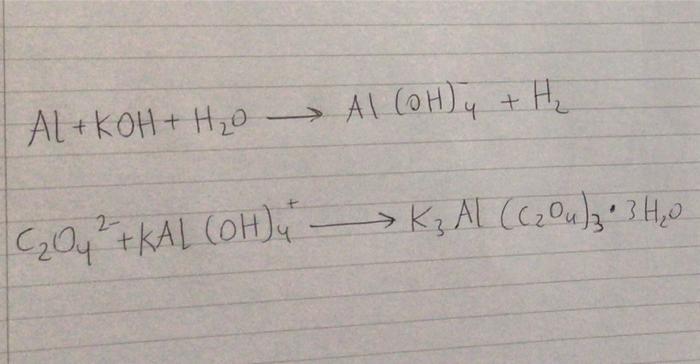 Al + KOH + H₂O ⟶ Al(OH)₄⁻ + H₂
C₂O₄²⁻ + KAl(OH)₄⁺ ⟶ K₃Al(C₂O₄)₃·3H₂O